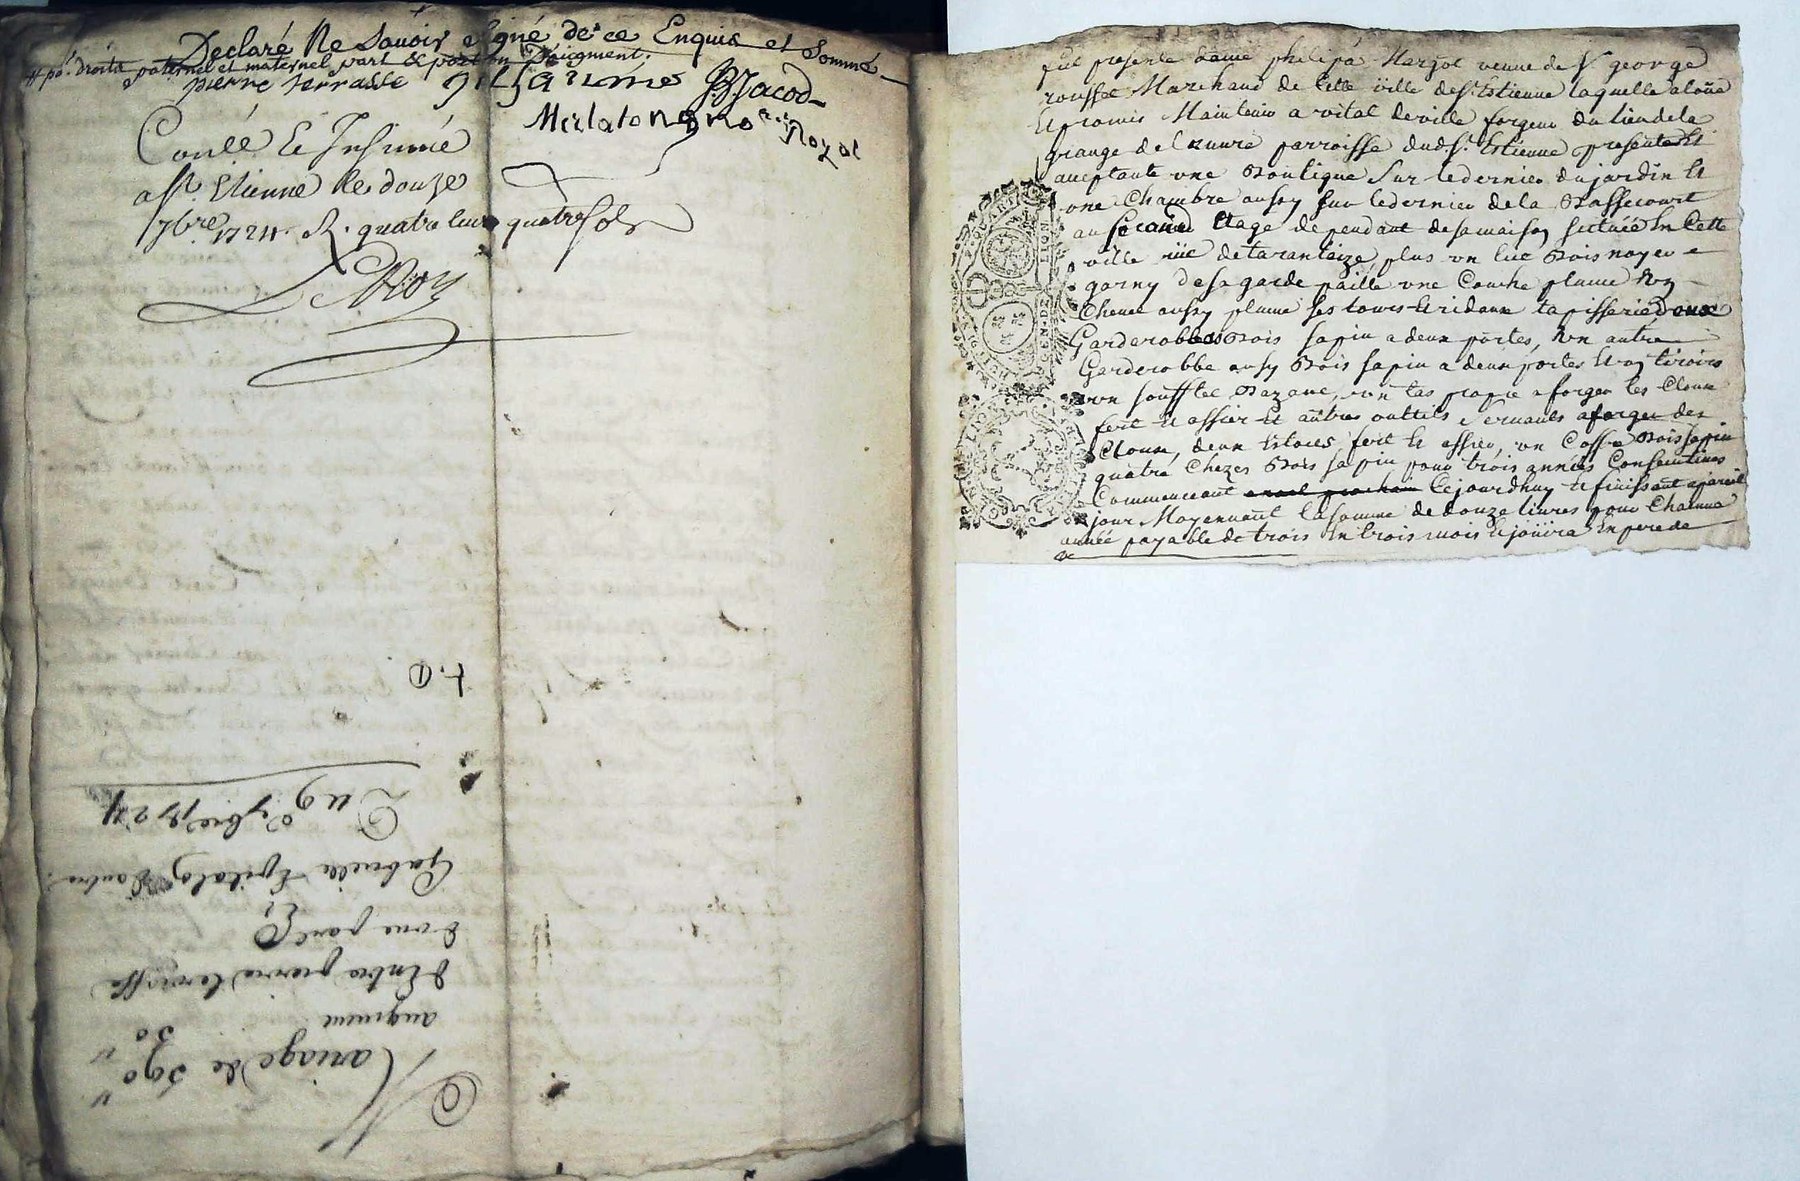 Declaré Ne Savoir signé de ce Enquis et Sommé
pr. droits paternel et maternel part & portion
pierre terrasse guillaume BJacod
Merlaton no.re Royal
Conllé Et Insinué
a St. Etienne Le douze
7bre 1724. R. quatre livres quatre sols
Mariage de 590
augment 30
d'Entre pierre terrasse
d'une part
Et
Gabrielle d'autre
Du 9 7bre 1724
fut presente dame philipa veuve de Sr. george
roussel Marchand de Cette ville de St. Estienne laquelle a loüé
Et promis Maintenir a vital deville forgeur du lieu de la
grange de l'œuvre parroisse dud. St. Estienne present Et
acceptant une Boutique Sur le dernier du jardin Et
une Chambre aussy sur le dernier de la Bassecourt
au second Etage dependant de sa maison scituée En Cette
ville rüe de tarantaize, plus un lict Bois noyer
garny de sa garde paille une Couche plume Un
Chevet aussy plume ses tours Et ridaux tapisserie deux
Garderobbes Bois sapin a deux portes, Un autre
Garderobbe aussy Bois sapin a deux portes Et un tiroirs
un soufflet Bazane, un tas propre a forger les Cloux
fert Et assier Et autres outtils Servants a forger des
Cloux, deux Estocs fert Et assier, un Coffre Bois sapin
quatre Chezes Bois sapin pour trois années Consecutives
Commencant cejourdhuy Et finissant a pareil
jour Moyennant la somme de douze livres pour Chacune
année payable de trois En trois mois Et joüira En pere de